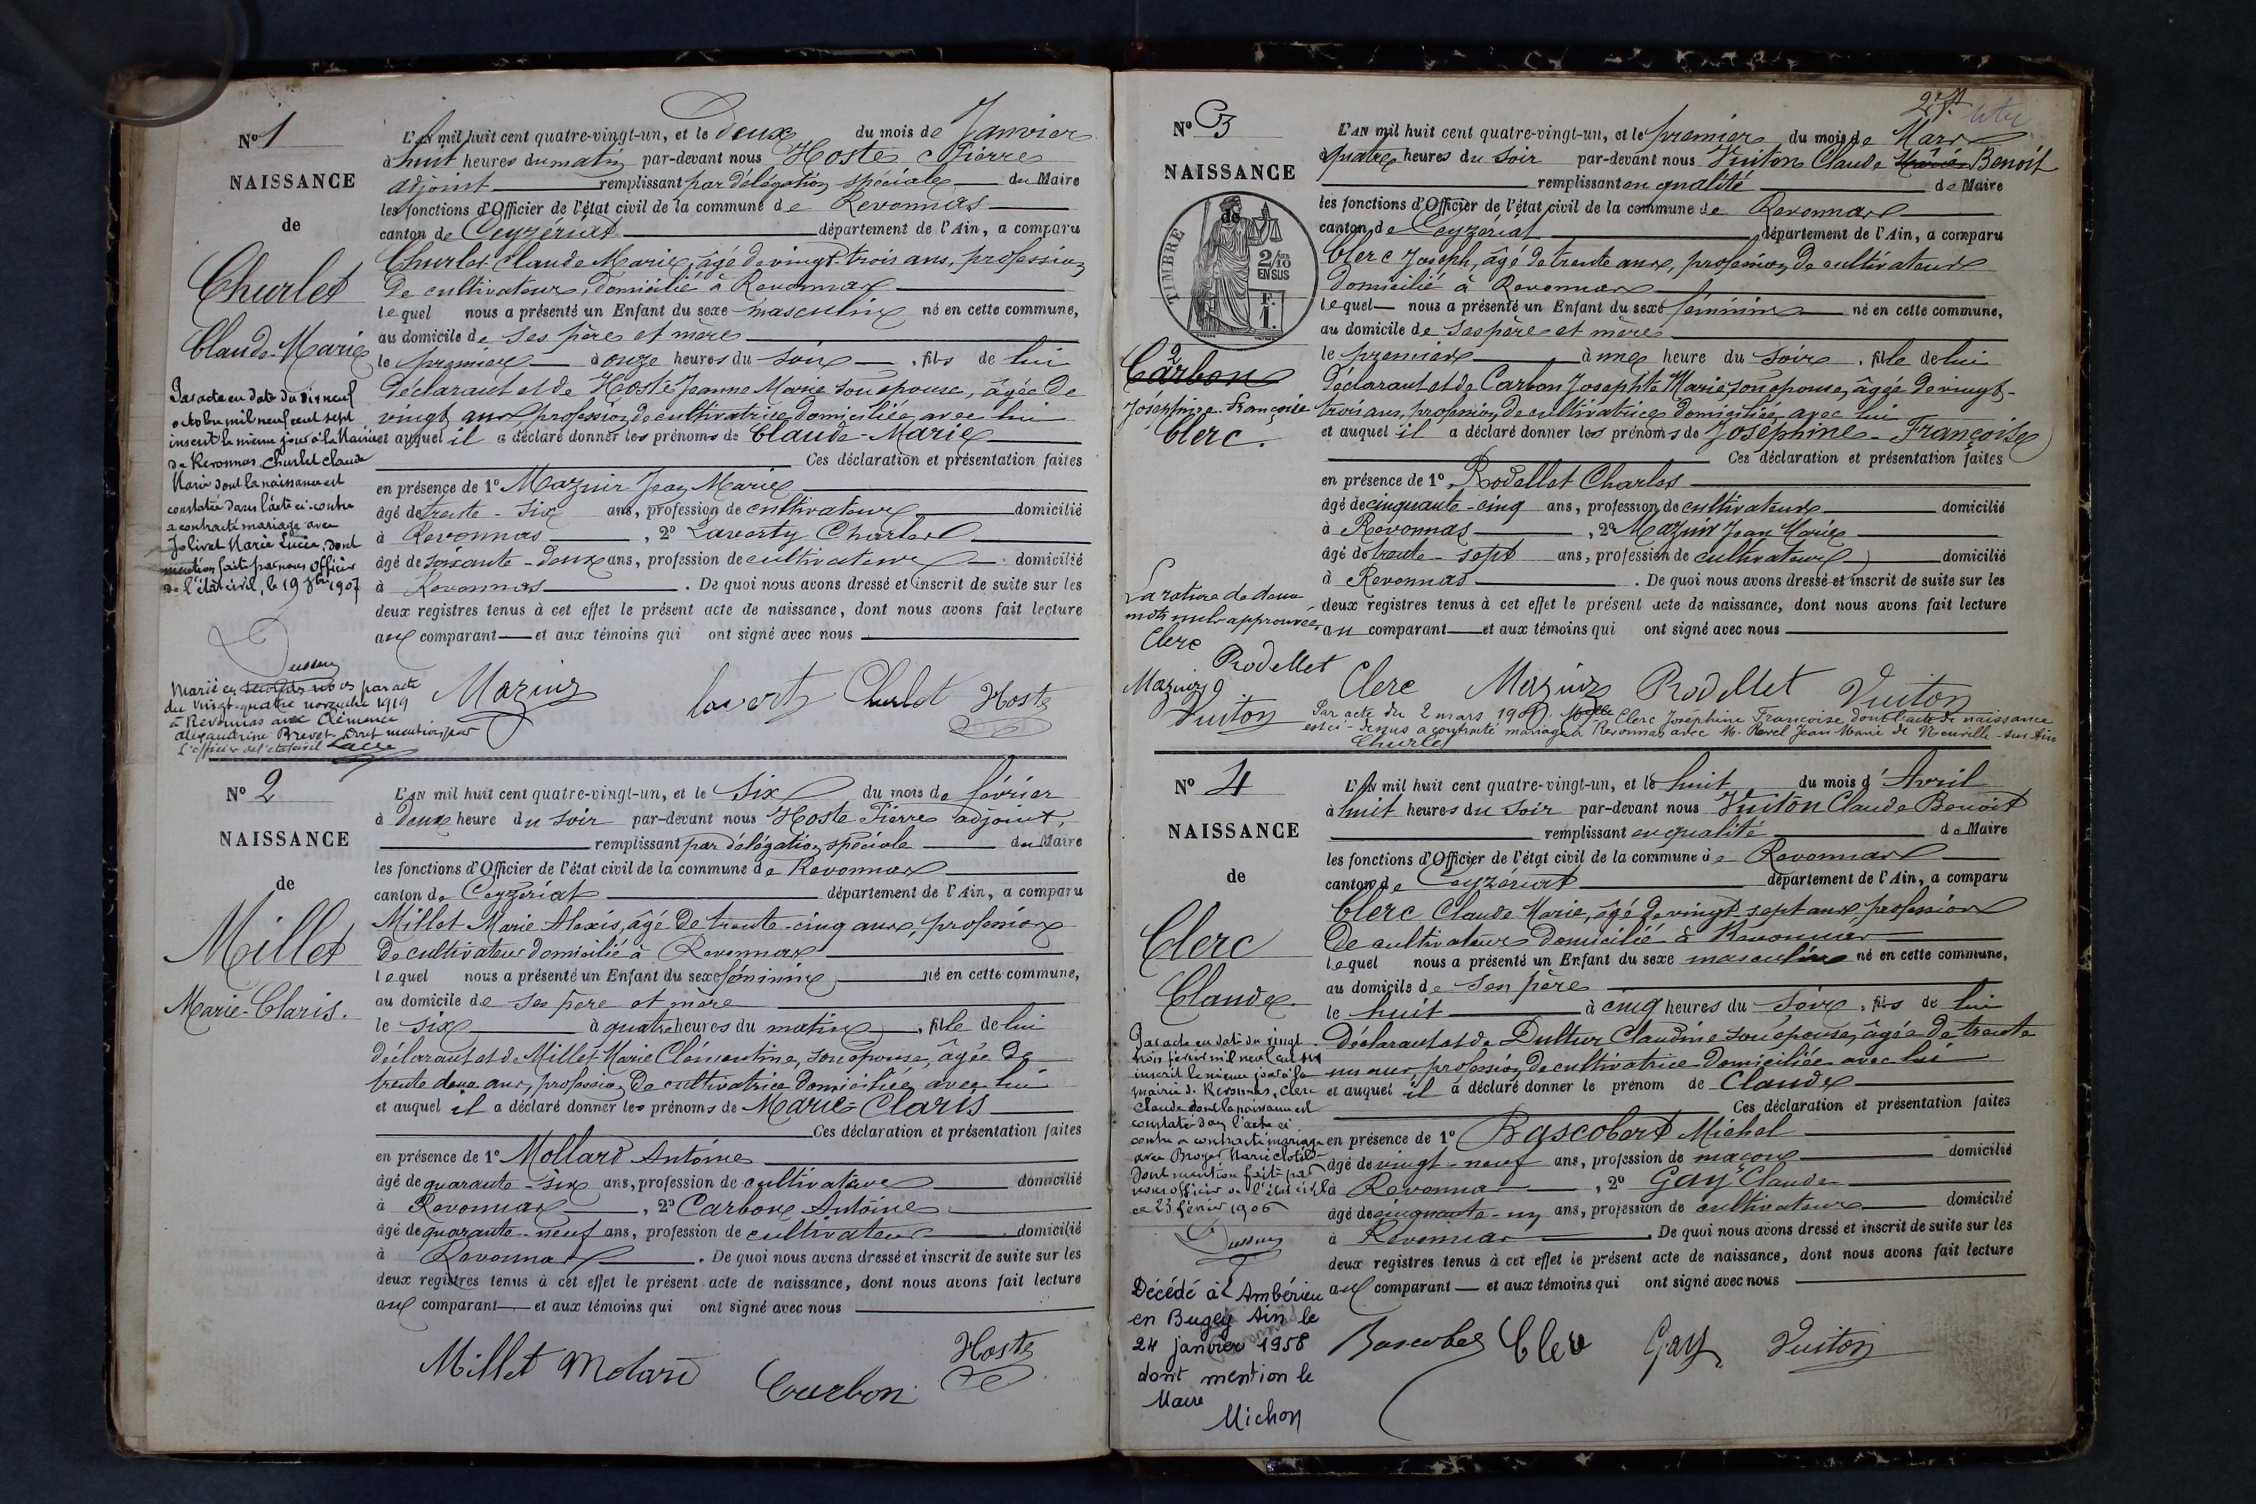 No 1
NAISSANCE
de
Churlet
Claude-Marie
L'AN mil huit cent quatre-vingt-un, et le Deux du mois de Janvier
à huit heures du matin par-devant nous Hoste Pierre
adjoint remplissant par délégation spéciale du Maire
les fonctions d'Officier de l'état civil de la commune de Revonnas
canton de Ceyzériat département de l'Ain, a comparu
Churlet Claude Marie, âgé de vingt-trois ans, profession
de cultivateur, domicilié à Revonnas
lequel nous a présenté un Enfant du sexe masculin né en cette commune,
au domicile de ses père et mère
le premier à onze heures du soir, fils de lui
déclarant et de Hoste Jeanne Marie son épouse, âgée de
vingt ans profession de cultivatrice domiciliée avec lui
et auquel il a déclaré donner les prénoms de Claude-Marie
Ces déclaration et présentation faites
en présence de 1° Mazuir Jean Marie
âgé de trente-six ans, profession de cultivateur domicilié
à Revonnas, 2° Laverty Charles
âgé de soixante-deux ans, profession de cultivateur domicilié
à Revonnas. De quoi nous avons dressé et inscrit de suite sur les
deux registres tenus à cet effet le présent acte de naissance, dont nous avons fait lecture
aux comparant et aux témoins qui ont signé avec nous
Par acte en date du dix neuf
octobre mil neuf cent sept
inscrit le même jour à la Mairie
de Revonnas Churlet Claude
Marie dont la naissance est
constatée dans l'acte ci-contre
a contracté mariage avec
Jolivet Marie Lucie, dont
mention faite par nous Officier
de l'état civil, le 19 8bre 1907
Mazuir Lavert Churlet Hoste
Marié en secondes noces par acte
du vingt-quatre novembre 1919
à Revonnas avec Clémence
Alexandrine Brevet dont mention par
L'officier de l'état civil
No 2
NAISSANCE
de
Millet
Marie-Claris.
L'AN mil huit cent quatre-vingt-un, et le Six du mois de février
à deux heure du soir par-devant nous Hoste Pierre adjoint,
remplissant par délégation spéciale du Maire
les fonctions d'Officier de l'état civil de la commune de Revonnas
canton de Ceyzériat département de l'Ain, a comparu
Millet Marie Alexis, âgé de trente-cinq ans, profession
de cultivateur domicilié à Revonnas
lequel nous a présenté un Enfant du sexe féminin né en cette commune,
au domicile de ses père et mère
le six à quatre heures du matin, fille de lui
déclarant et de Millet Marie Clémentine, son épouse, âgée de
trente deux ans, profession de cultivatrice domiciliée avec lui
et auquel il a déclaré donner les prénoms de Marie-Claris
Ces déclaration et présentation faites
en présence de 1° Mollard Antoine
âgé de quarante-six ans, profession de cultivateur domicilié
à Revonnas, 2° Carbon Antoine
âgé de quarante-neuf ans, profession de cultivateur domicilié
à Revonnas. De quoi nous avons dressé et inscrit de suite sur les
deux registres tenus à cet effet le présent acte de naissance, dont nous avons fait lecture
aux comparant et aux témoins qui ont signé avec nous
Millet Molard Carbon Hoste
No 3
NAISSANCE
de
TIMBRE
2/10
EN SUS
F.
1.
Carbon
Joséphine-Françoise
Clerc.
L'AN mil huit cent quatre-vingt-un, et le premier du mois de Mars
à quatre heures du soir par-devant nous Vuiton Claude Marie Benoit
remplissant en qualité de Maire
les fonctions d'Officier de l'état civil de la commune de Revonnas
canton de Ceyzériat département de l'Ain, a comparu
Clerc Joseph, âgé de trente ans, profession de cultivateur
domicilié à Revonnas
lequel nous a présenté un Enfant du sexe féminin né en cette commune,
au domicile de ses père et mère
le premier à une heure du soir, fille de lui
déclarant et de Carbon Josephte Marie, son épouse, âgée de vingt-
trois ans, profession de cultivatrice domiciliée avec lui
et auquel il a déclaré donner les prénoms de Joséphine-Françoise
Ces déclaration et présentation faites
en présence de 1° Rodellet Charles
âgé de cinquante-cinq ans, profession de cultivateur domicilié
à Revonnas, 2° Mazuir Jean Marie
âgé de trente-sept ans, profession de cultivateur domicilié
à Revonnas. De quoi nous avons dressé et inscrit de suite sur les
deux registres tenus à cet effet le présent acte de naissance, dont nous avons fait lecture
au comparant et aux témoins qui ont signé avec nous
La rature de deux
mots nuls approuvée
Clerc
Rodellet
Mazuir
Vuiton
Clerc Mazuir Rodellet Vuiton
Par acte du 2 mars Clerc Joséphine Françoise dont l'acte de naissance
est ci-dessus a contracté mariage à Revonnas avec M. Revel Jean Marie de Neuville-sur-Ain
Churlet
No 4
NAISSANCE
de
Clerc
Claude.
L'AN mil huit cent quatre-vingt-un, et le huit du mois d'Avril
à huit heures du soir par-devant nous Vuiton Claude Benoit
remplissant en qualité de Maire
les fonctions d'Officier de l'état civil de la commune de Revonnas
canton de Ceyzériat département de l'Ain, a comparu
Clerc Claude Marie, âgé de vingt sept ans profession
de cultivateur domicilié à Revonnas
lequel nous a présenté un Enfant du sexe masculin né en cette commune,
au domicile de son père
le huit à cinq heures du soir, fils de lui
déclarant et de Dultur Claudine son épouse, âgée de trente
un ans, profession de cultivatrice domiciliée avec lui
et auquel il a déclaré donner le prénom de Claude
Ces déclaration et présentation faites
en présence de 1° Bascobert Michel
âgé de vingt-neuf ans, profession de maçon domicilié
à Revonnas, 2° Gay Claude
âgé de cinquante-un ans, profession de cultivateur domicilié
à Revonnas. De quoi nous avons dressé et inscrit de suite sur les
deux registres tenus à cet effet le présent acte de naissance, dont nous avons fait lecture
aux comparant et aux témoins qui ont signé avec nous
Par acte en date du vingt
trois février mil neuf cent six
inscrit le même jour à la
mairie de Revonnas, Clerc
Claude dont la naissance est
constatée dans l'acte ci
contre a contracté mariage
avec Broyer Marie Clotilde
dont mention faite par
nous officier de l'état civil
ce 23 février 1906
Décédé à Ambérieu
en Bugey Ain le
24 janvier 1958
dont mention le
Maire
Michon
Clerc Gay Vuiton